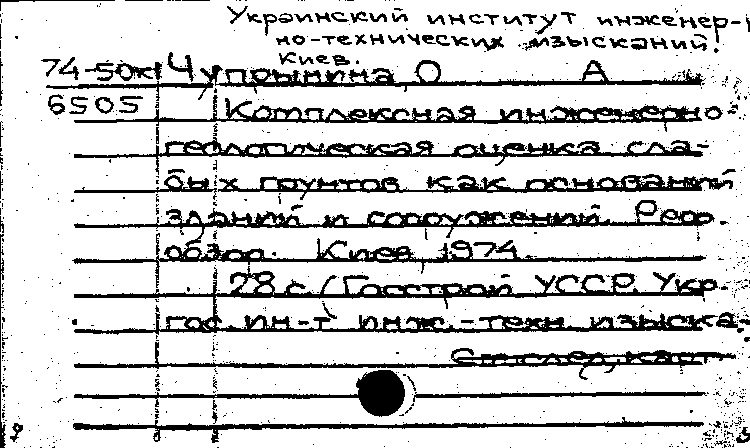 Украинский институт инженер-
но-технических изысканий.
Киев.
74-50к Чупрынина О А
6505 Комплексная инженерно-
геологическая оценка сла-
бых грунтов как оснований
зданий и сооружений. Реф.
обзор. Киев, 1974.
28 с. (Госстрой УССР. Укр.
гос. ин-т инж.-техн. изыска-
См след, карт